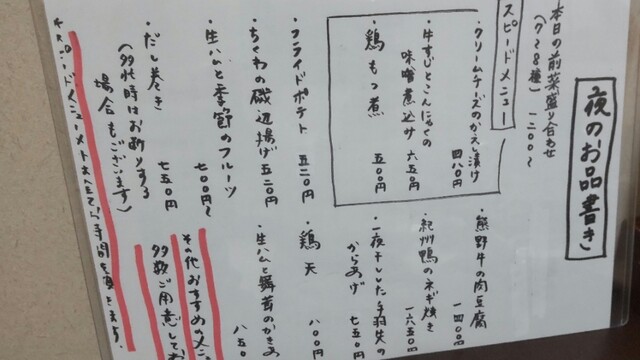 夜のお品書き
本日の前菜盛り合わせ
(7〜8種) 一二〇〇〜
スピードメニュー
・クリームチーズのかえし漬け 四八〇円
・牛すじとこんにゃくの
味噌煮込み 六五〇円
・鶏もつ煮 五〇〇円
・フライドポテト 五二〇円
・ちくわの磯辺揚げ 五二〇円
・生ハムと季節のフルーツ 七〇〇円〜
・だし巻き 七五〇円
(多忙時はお断りする
場合もございます)
・熊野牛の肉豆腐 一四〇〇円
・紀州鴨のネギ焼き 一六五〇円
・一夜干しした手羽先の
からあげ 七五〇円
・鶏天 八〇〇円
・生ハムと舞茸のかきあ
八五〇
その他おすすめメニュ
多数ご用意してお
スピードメニュー以外は全て
お時間を頂きます。